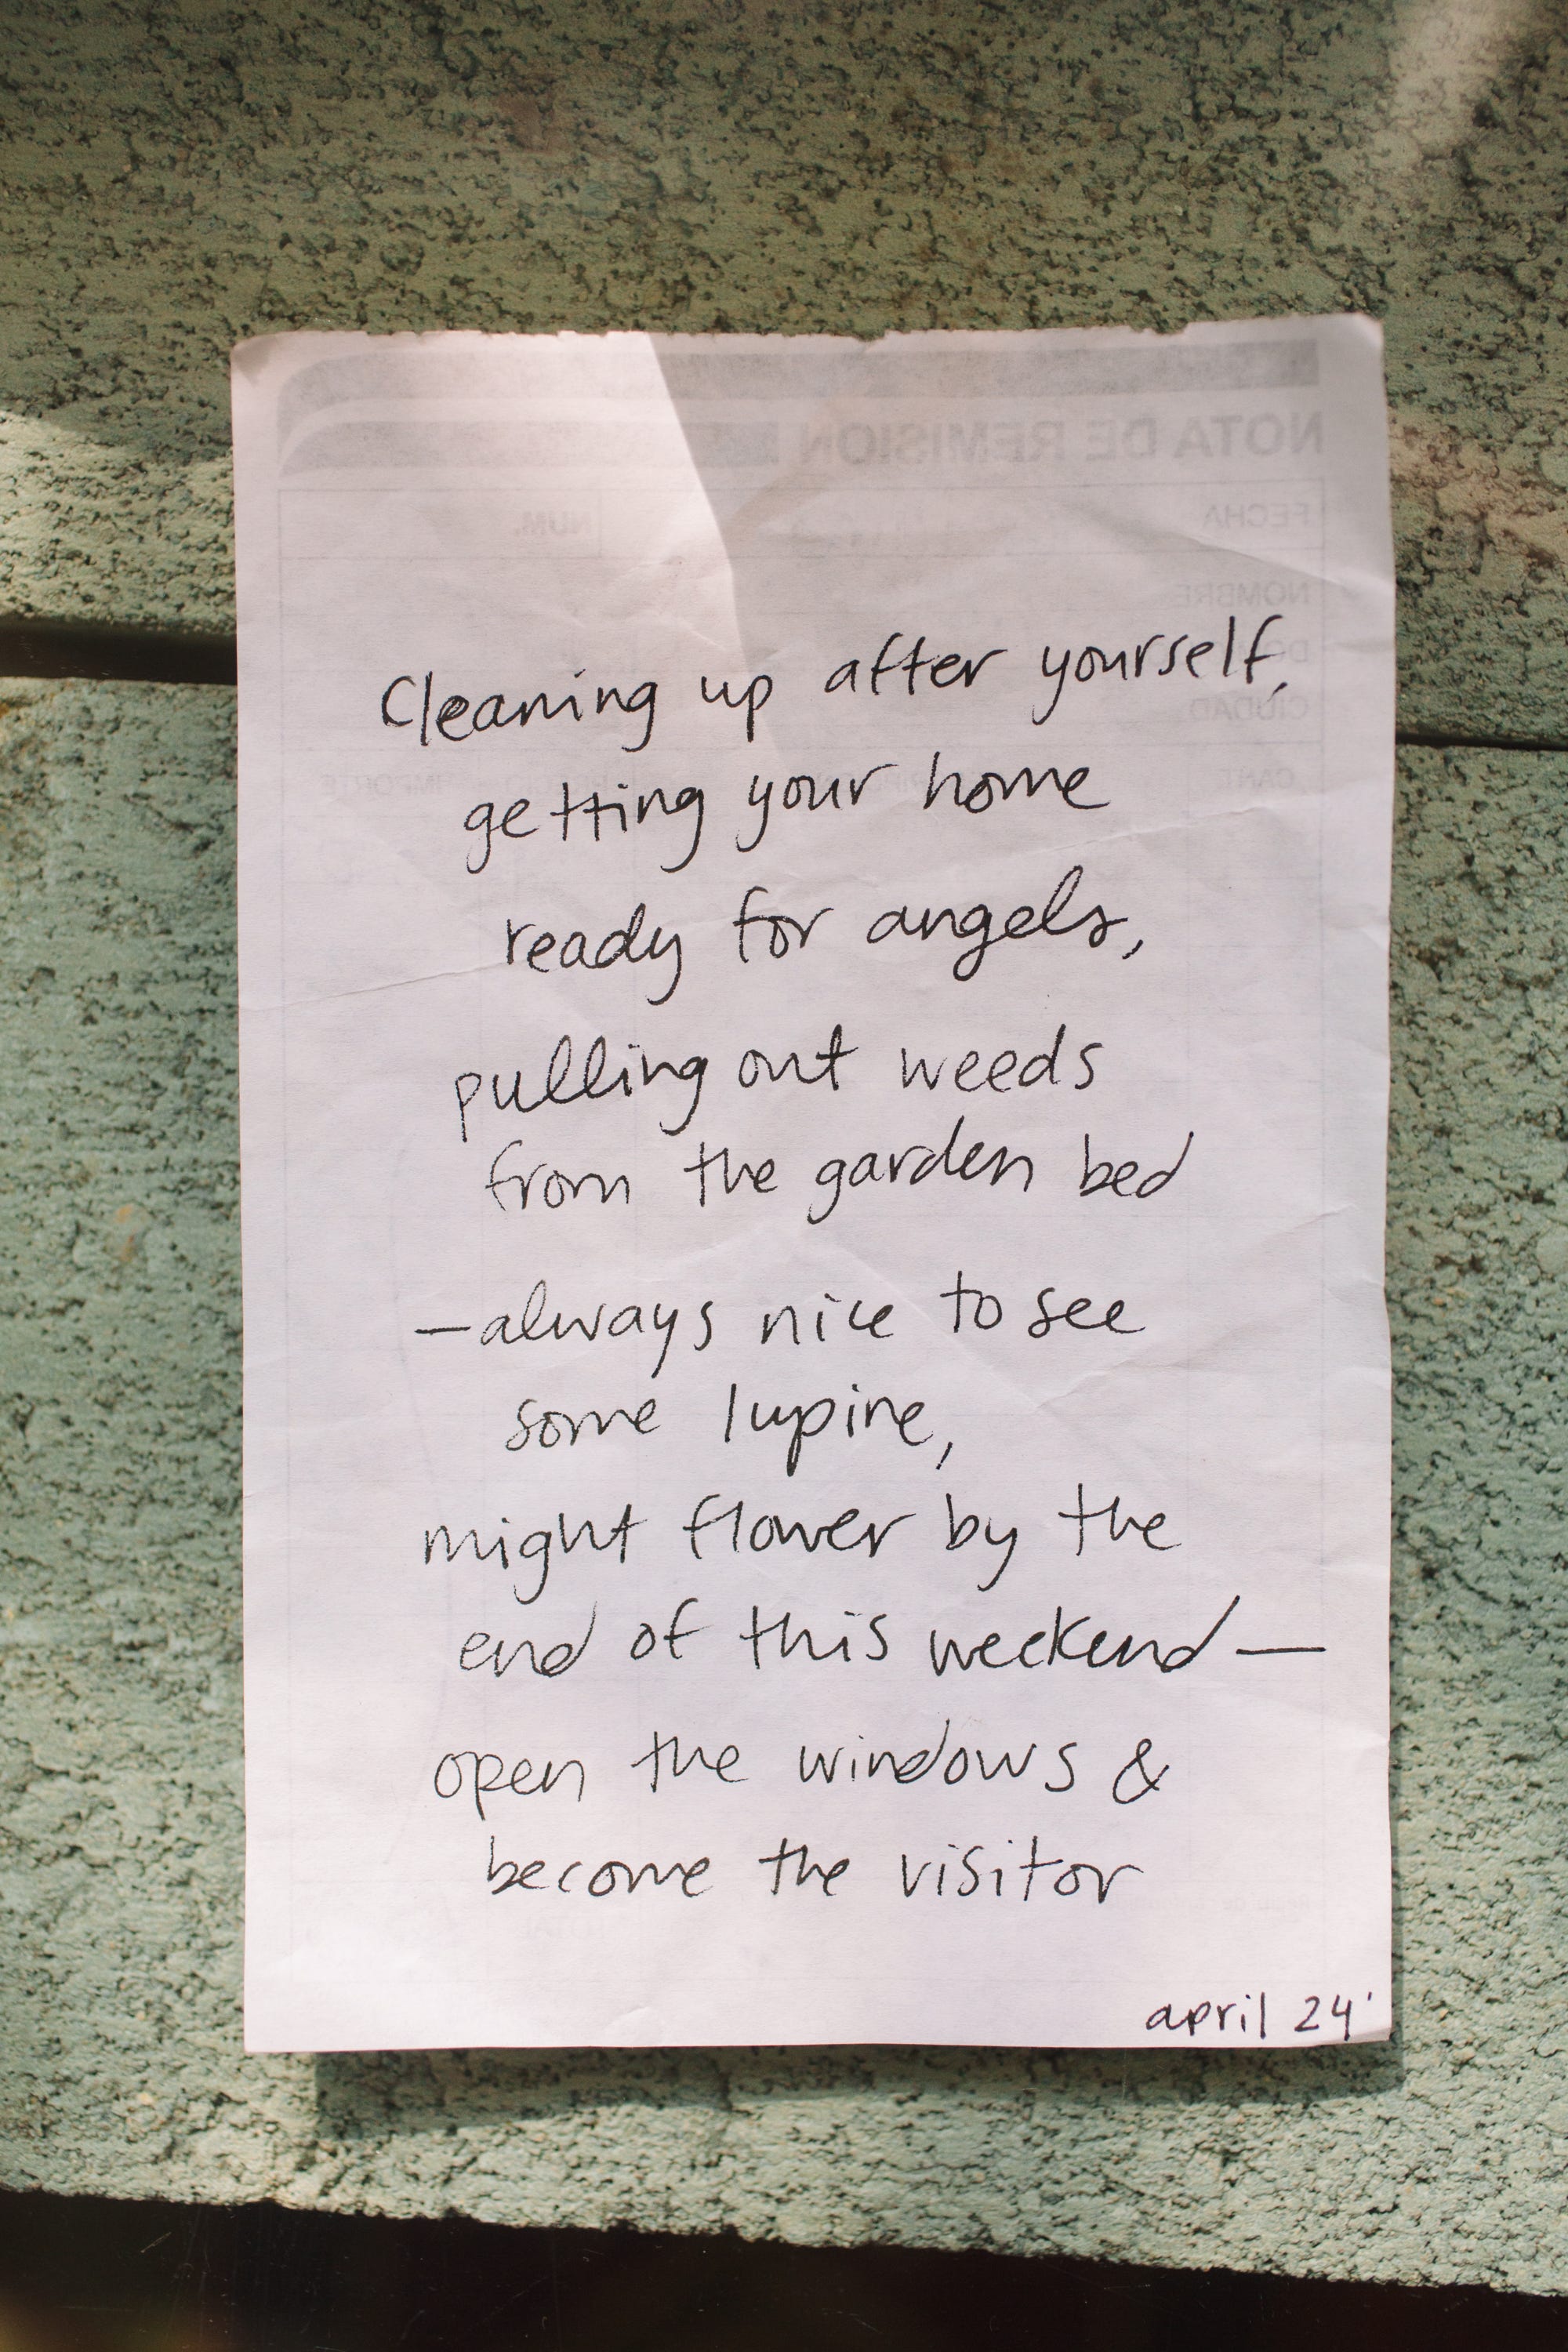 NOTA DE REMISION
FECHA
NUM.
NOMBRE
CIUDAD
CANT.
IMPORTE
Cleaning up after yourself,
getting your home
ready for angels,
pulling out weeds
from the garden bed
—always nice to see
some lupine,
might flower by the
end of this weekend—
open the windows &
become the visitor
april 24'